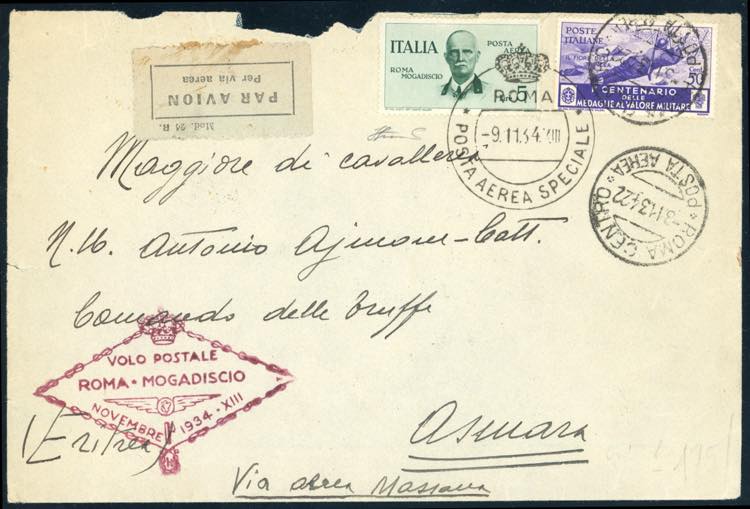 PAR AVION
Per via aerea
Mod. 24 R.
ITALIA
POSTA
ROMA
MOGADISCIO
5
POSTE
ITALIANE
CENTENARIO
DELLE
MEDAGLIE AL VALORE MILITARE
ROMA
-9.11.34.XIII
* POSTA AEREA SPECIALE *
* ROMA CENTRO * POSTA AEREA
-8.11.34.22
Maggiore di cavalleria
N.H. Antonio
Comando delle Truppe
VOLO POSTALE
ROMA · MOGADISCIO
NOVEMBRE 1934 · XIII
(Eritrea)
Asmara
Via aerea Massaua